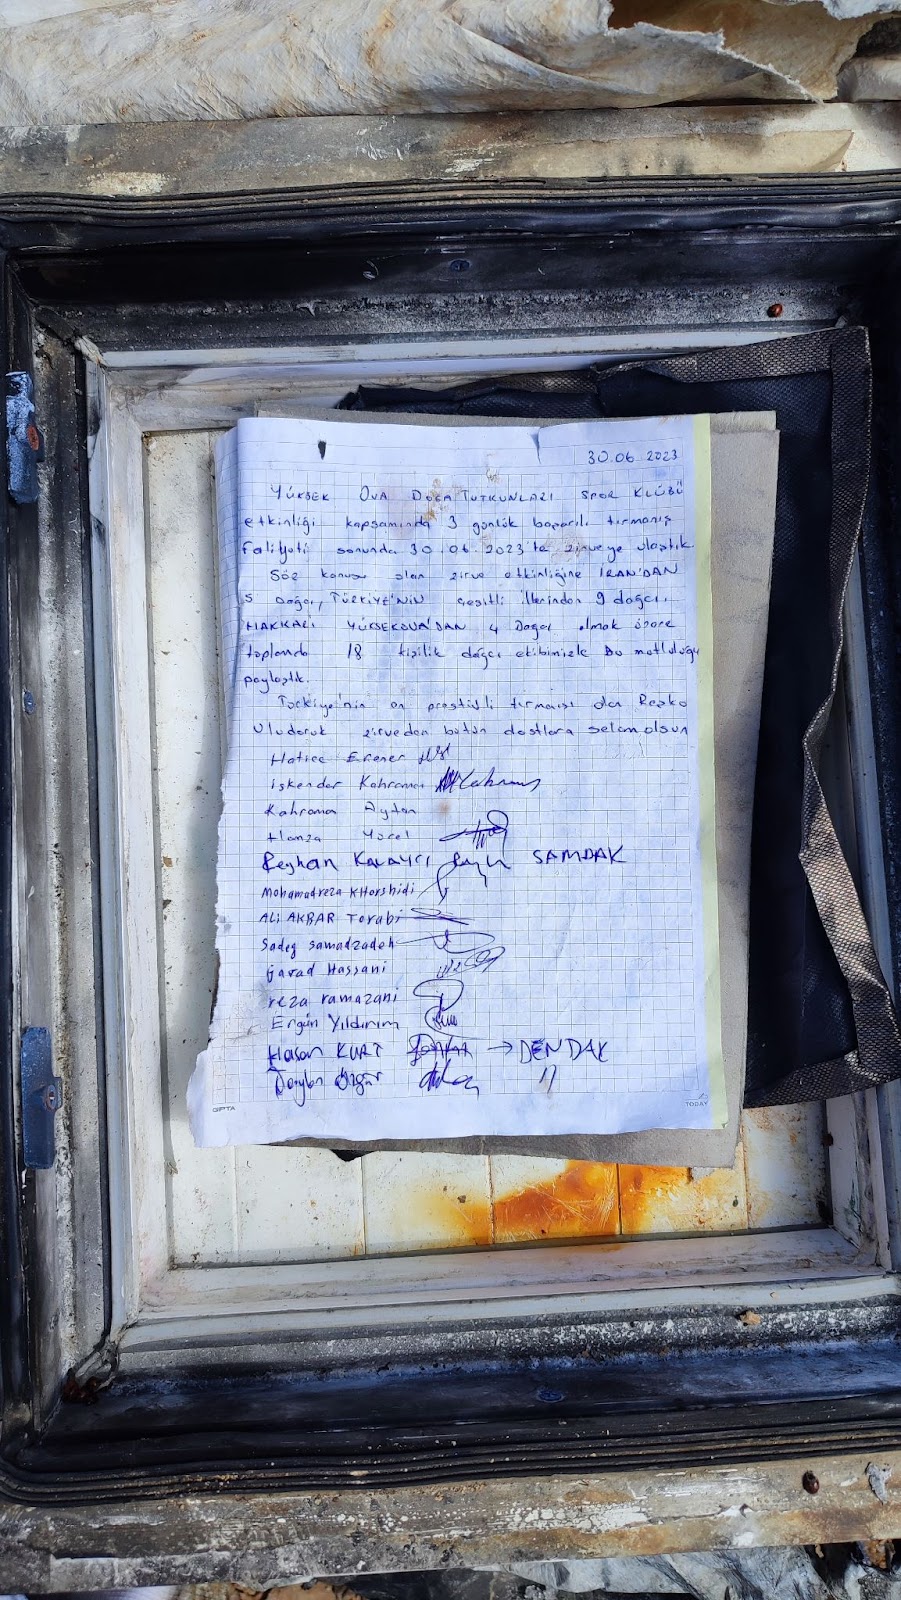 30.06.2023
YÜKSEK OVA DOĞA TUTKUNLARI SPOR KLÜBÜ
etkinliği kapsamında 3 günlük başarılı tırmanış
Faliyeti sonunda 30.06.2023'te zirveye ulaştık
Söz konusu olan zirve etkinliğine İRAN'DAN
5 Dağcı, TÜRKİYE'NİN çeşitli illerinden 9 dağcı,
HAKKARİ YÜKSEKOVA'DAN 4 Dağcı olmak üzere
toplamda 18 kişilik dağcı ekibimizle bu mutluluğu
paylaştık.
Türkiye'nin en prestijli tırmanışı olan Reşko
Uludoruk zirveden bütün dostlara selam olsun
Hatice Erener
İskender Kahraman
Kahraman Aytan
Hamza Yücel
Reyhan KALAYCI SAMDAK
Mohamadreza KHorshidi
ALi AKBAR Torabi
Sadeg Samadzadeh
Javad Hassani
reza ramazani
Ergün Yıldırım
Hasan KURT → DENDAK
GIPTA TODAY